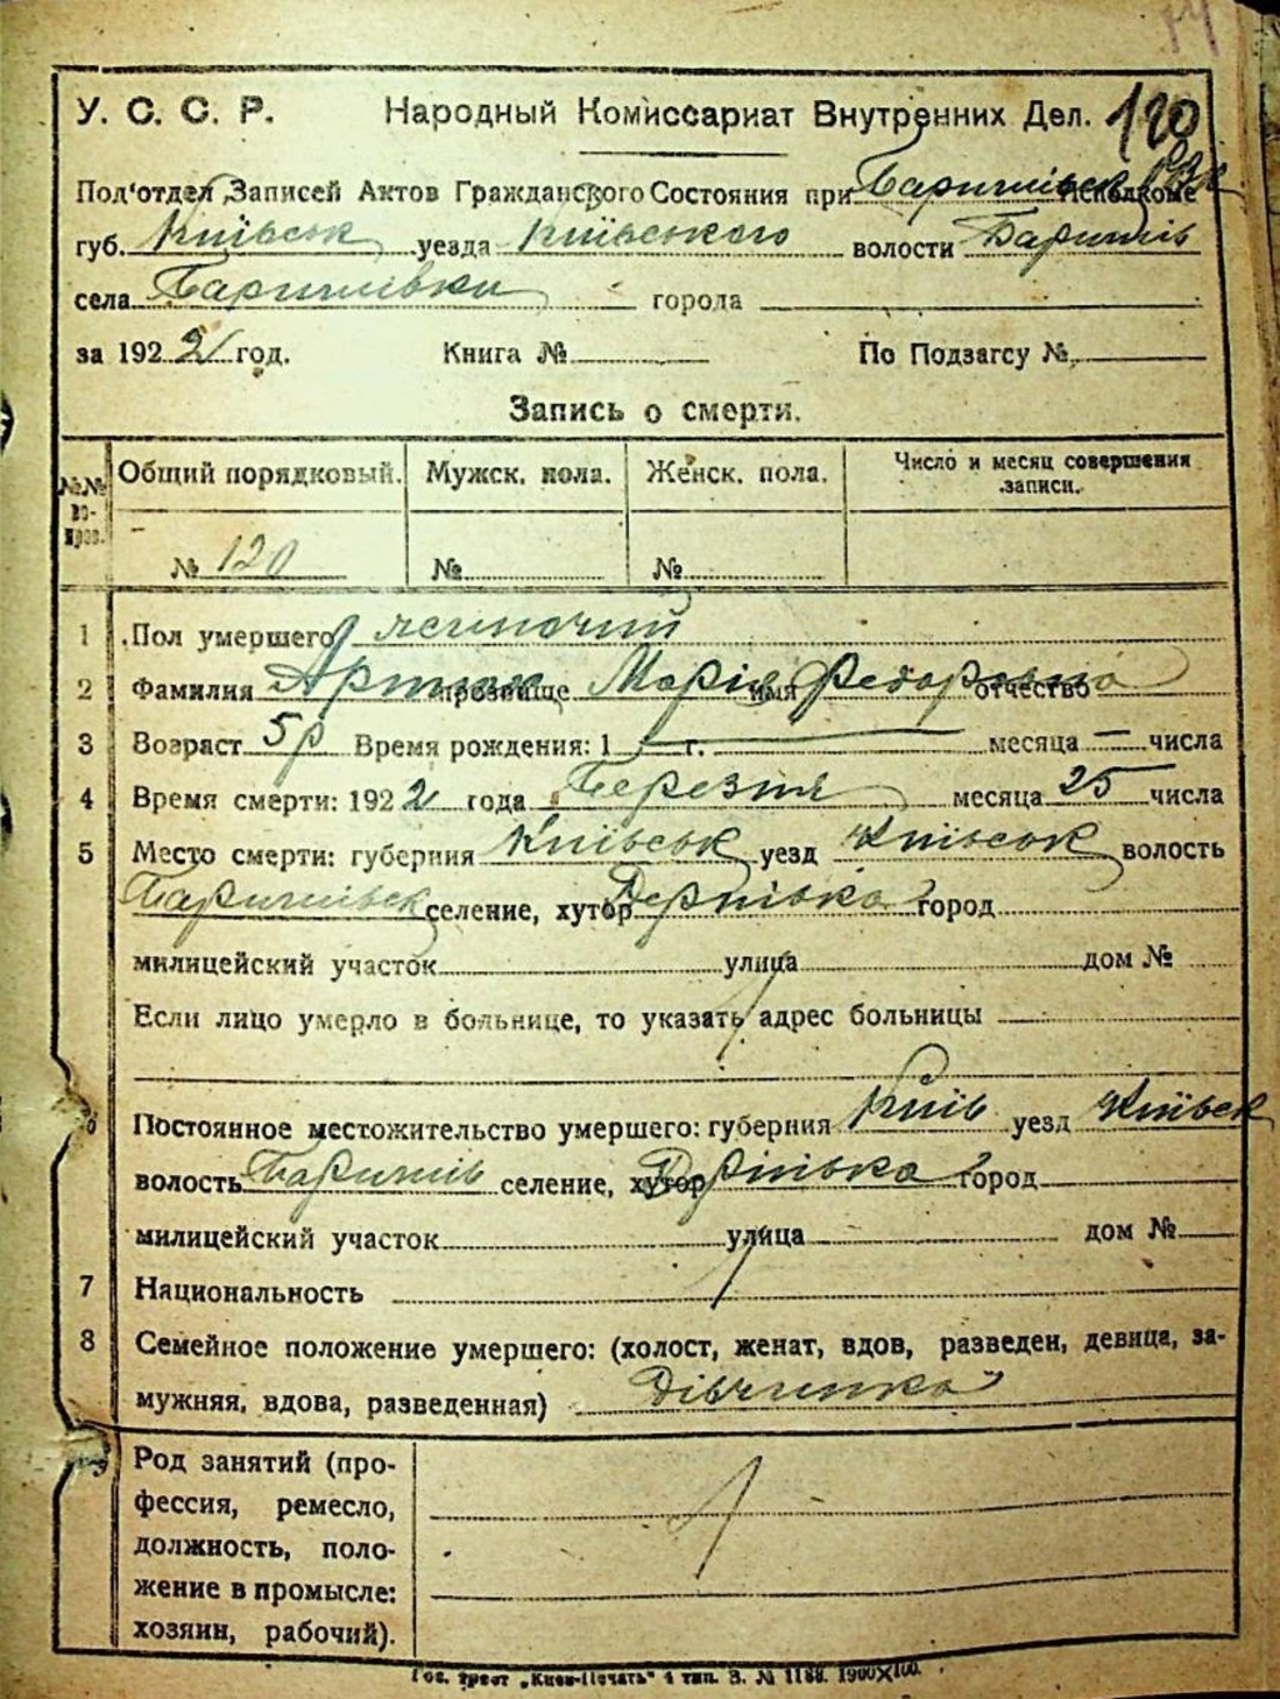 У. С. С. Р. Народный Комиссариат Внутренних Дел. 120
Под'отдел Записей Актов Гражданского Состояния при Баришівск Исполкоме
губ. Київськ уезда Київського волости Баришів
села Баришівки города
за 1922 год. Книга № По Подзагсу №
Запись о смерти.
№№ во-прос. Общий порядковый. Мужск. пола. Женск. пола. Число и месяц совершения записи.
№ 120 № №
1 Пол умершего жіночий
2 Фамилия прозвище Марія имя Федоровна отчество
3 Возраст 5 р Время рождения: 1 — г. месяца — числа
4 Время смерти: 1922 года Березня месяца 25 числа
5 Место смерти: губерния Київськ уезд Київськ волость
Баришівск селение, хутор Дернівка город
милицейский участок улица дом №
Если лицо умерло в больнице, то указать адрес больницы
6 Постоянное местожительство умершего: губерния Київ уезд Київск
волость Баришів селение, хутор Дернівка город
милицейский участок улица дом №
7 Национальность
8 Семейное положение умершего: (холост, женат, вдов, разведен, девица, за-
мужняя, вдова, разведенная) Дівчинка
Род занятий (про-
фессия, ремесло,
должность, поло-
жение в промысле:
хозяин, рабочий).
Гос. трест „Киев-Печать" 4 тип. З. № 1188. 1900×100.